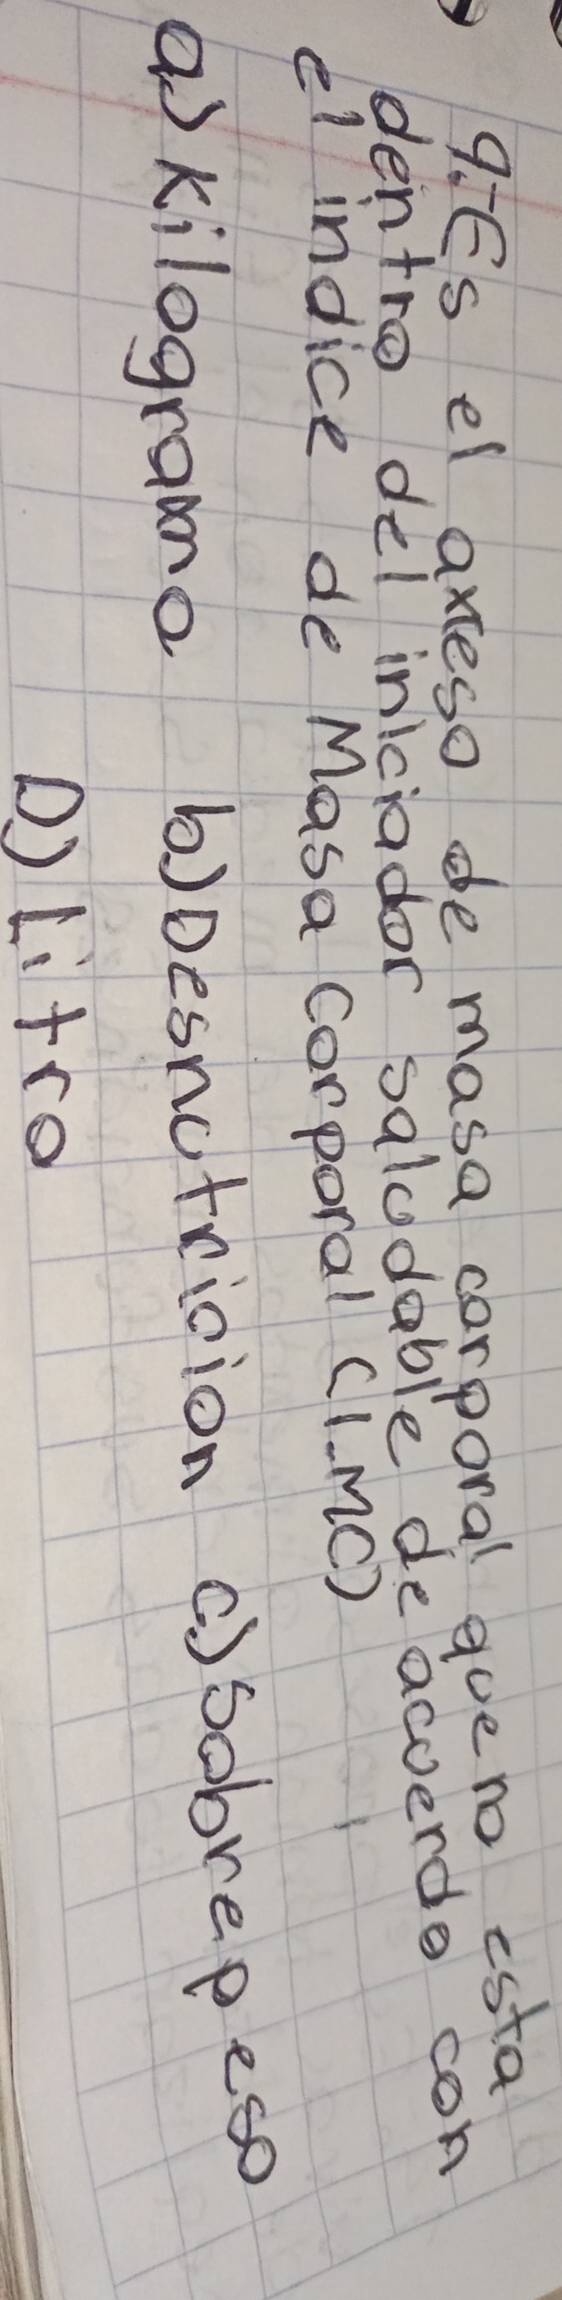 9.-Es el axeso de masa corporal que no esta
dentro del iniciador saludable de acuerdo con
el indice de Masa Corporal (I.MC)
a) Kilograma b) Desnutricion c) Sobrepeso
D) Litro